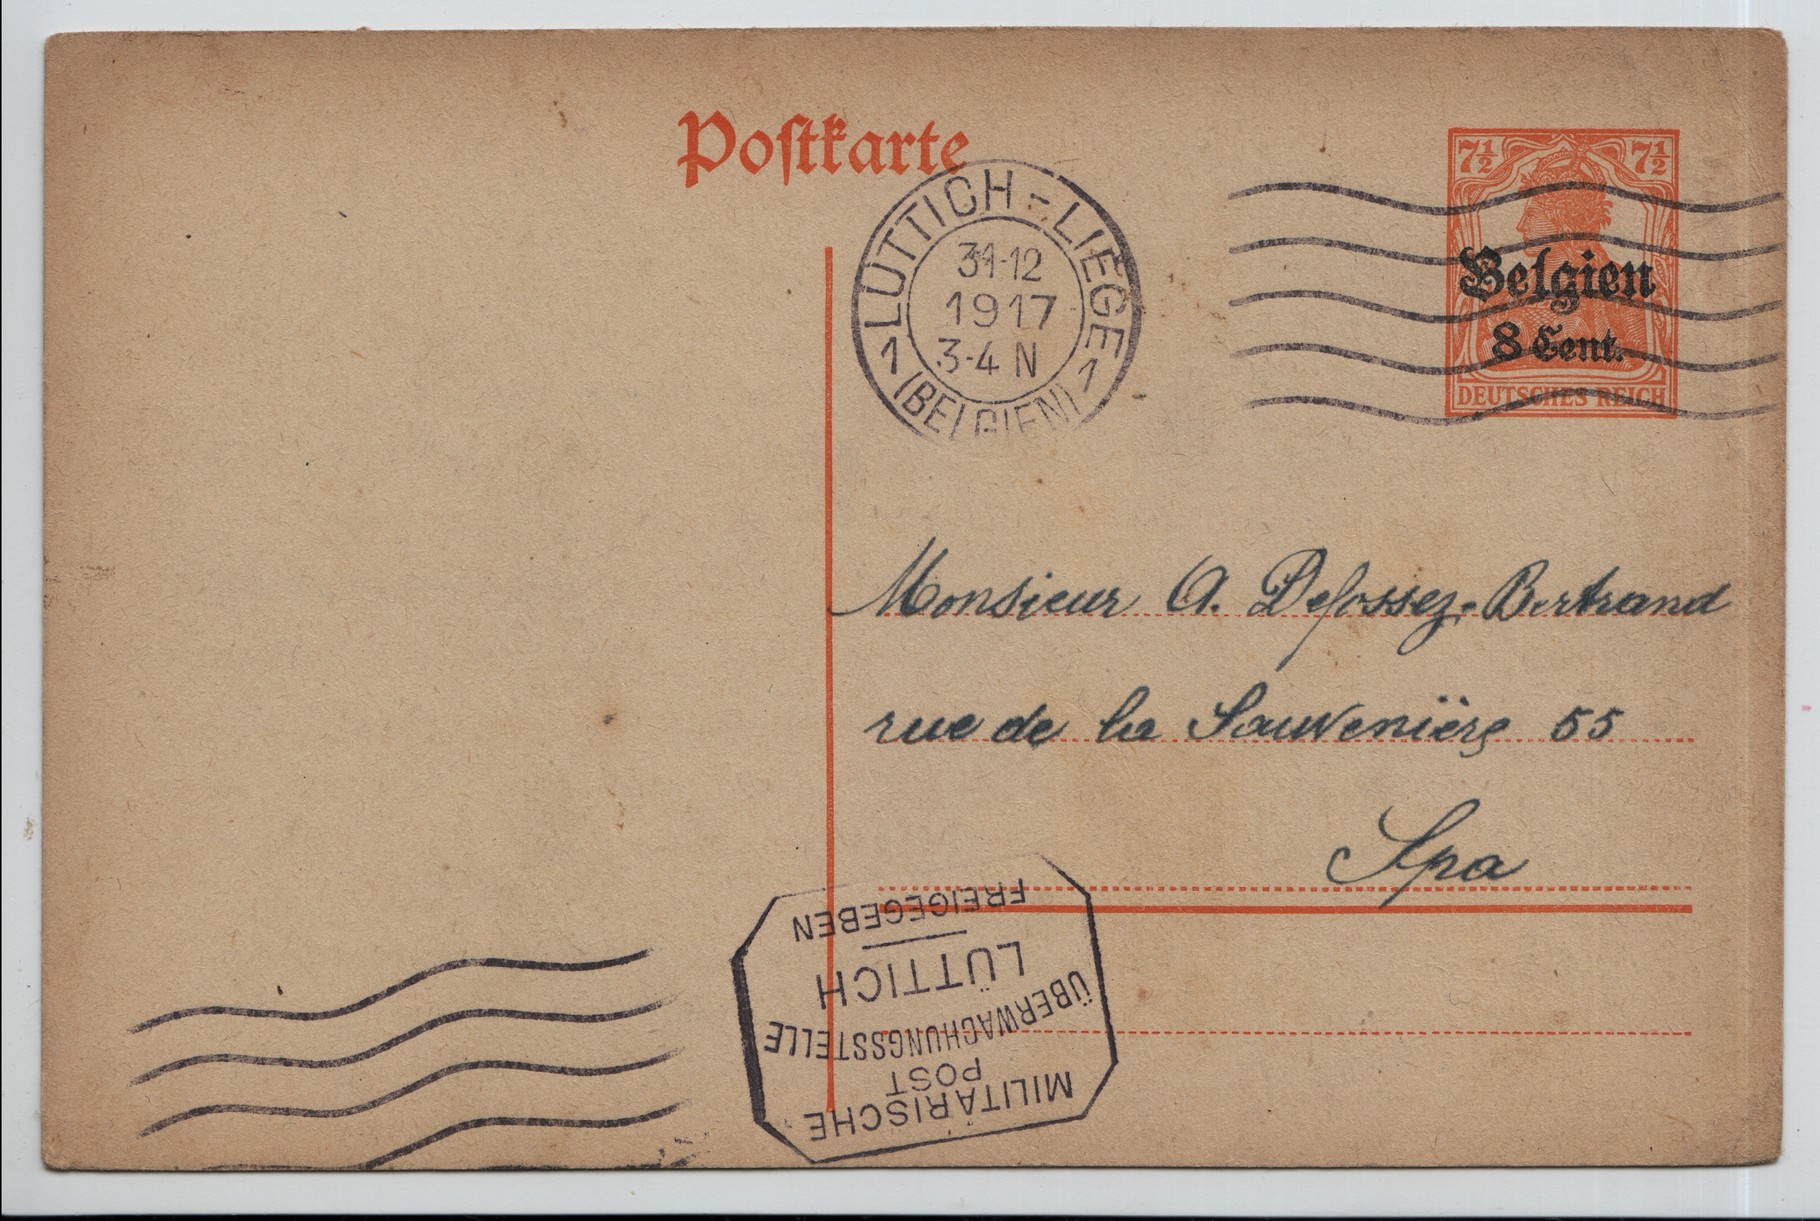 Postkarte
7½ 7½
Belgien
8 Cent.
DEUTSCHES REICH
LÜTTICH - LIÈGE
31-12
1917
3-4 N
1 1
(BELGIEN)
Monsieur A. Defossez-Bertrand
rue de la Sauvenière 55
Spa
MILITÄRISCHE
POST
ÜBERWACHUNGSSTELLE
LÜTTICH
FREIGEGEBEN